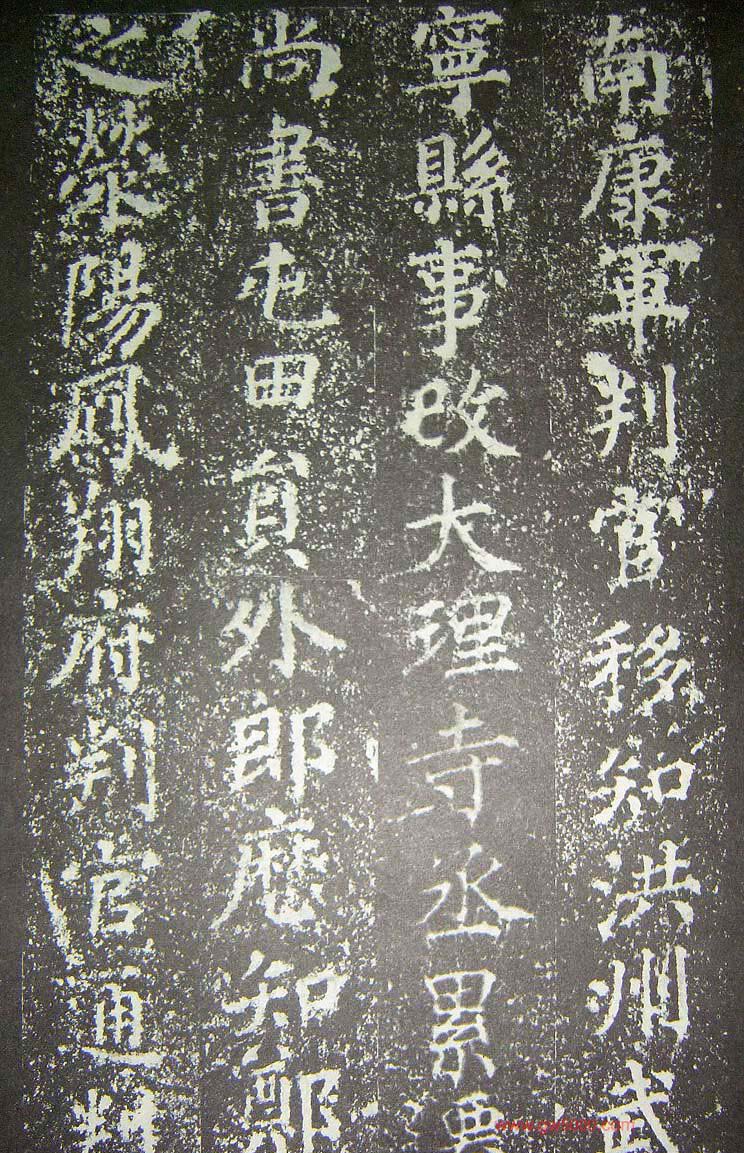 南康軍判官移知洪州武
寧縣事改大理寺丞累遷
尚書屯田員外郎歷知鄭
之滎陽鳳翔府判官通判